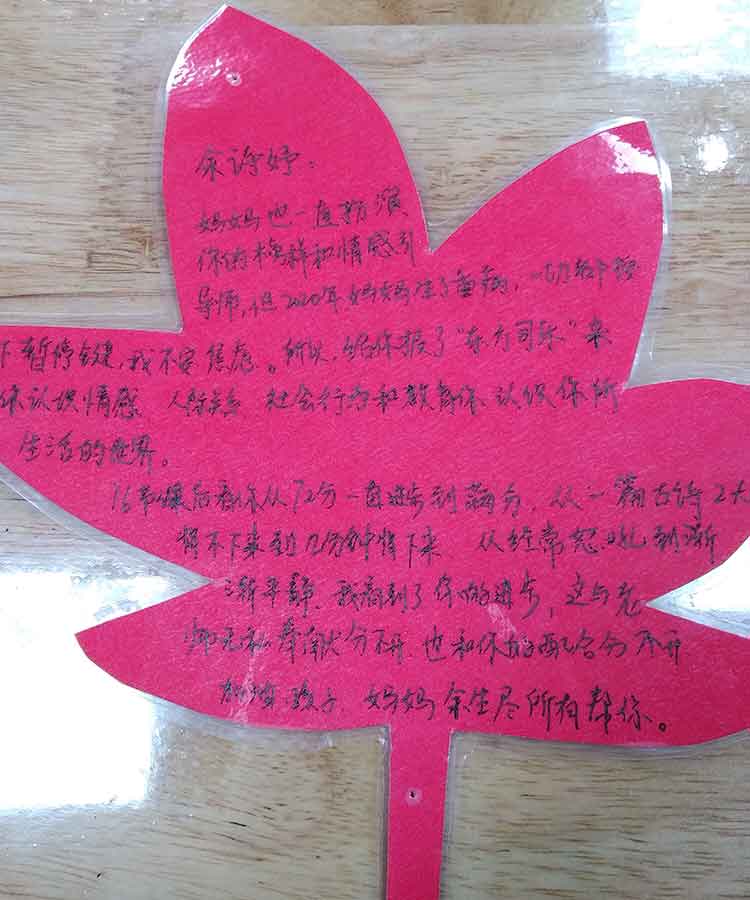 余诗妤：
妈妈也一直扮演
你的榜样和情感引
导师，但2020年妈妈生了重病，一切都被按
下暂停键，我不安焦虑。所以，给你报了“东方司乐”来
你认识情感 人际关系 社会行为和教育你认识你所
生活的世界。
16节课后看你从72分一直进步到满分，从一篇古诗2天
背不下来到几分钟背下来 从经常怒吼到渐
渐平静，我看到了你的进步，这与老
师无私奉献分不开，也和你的配合分不开
加油孩子，妈妈余生尽所有帮你。